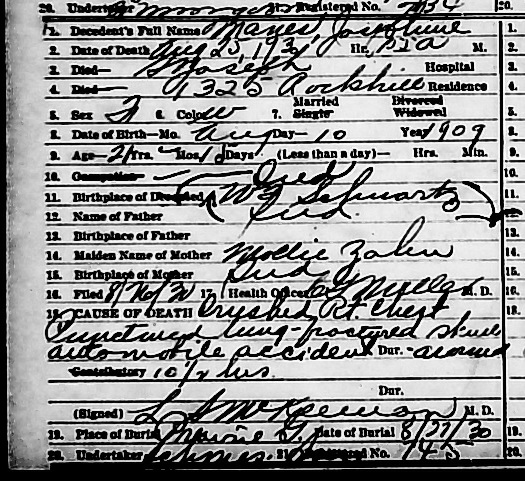 20. Undertaker Registered No. 734
1. Decedent's Full Name Mayes Josephine
2. Date of Death Aug 25, 1930 Hr. M.
3. Died— St Joseph Hospital
4. Died— 1325 Rockhill Residence
5. Sex F 6. Color W 7. Married Single Divorced Widowed
8. Date of Birth—Mo. Aug Day— 10 Year 1909
9. Age— 21 Yrs. Mos. 15 Days (Less than a day)— Hrs. Min.
10. Occupation Ind
11. Birthplace of Decedent Wm Schwartz
12. Name of Father Ind.
13. Birthplace of Father
14. Maiden Name of Mother Mollie Zahn
15. Birthplace of Mother Ind
16. Filed 8/26/30 17. Health Officer Mueller M. D.
18. CAUSE OF DEATH Crushed Rt. Chest
Punctured lung-fractured skull
automobile accident Dur. around
Contributory 10 1/2 hrs.
Dur.
(Signed) L McKeeman M. D.
19. Place of Burial Date of Burial 8/27/30
20. Undertaker 21. Registered No. 745
20.
1.
2.
3.
4.
5.
8.
9.
10.
11.
12.
13.
14.
15.
16.
18.
19.
20.